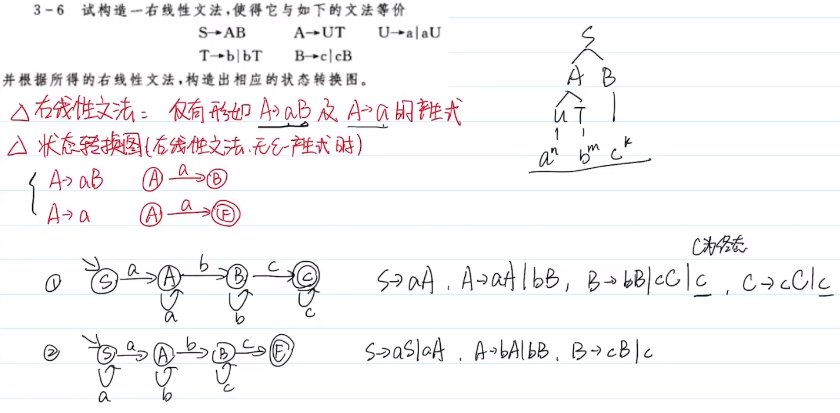 3-6 试构造一右线性文法,使得它与如下的文法等价
S→AB A→UT U→a|aU
T→b|bT B→c|cB
并根据所得的右线性文法,构造出相应的状态转换图。
△ 右线性文法: 仅有形如 A→aB 及 A→a 的产生式
△ 状态转换图(右线性文法、无ε-产生式时)
A→aB Ⓐ a→ Ⓑ
A→a Ⓐ a→ Ⓕ
S
A B
U T
aⁿ bᵐ cᵏ
C为终态
① S a A b B c C S→aA, A→aA|bB, B→bB|cC|c, C→cC|c
a b c
② S a A b B c F S→aS|aA, A→bA|bB, B→cB|c
a b c